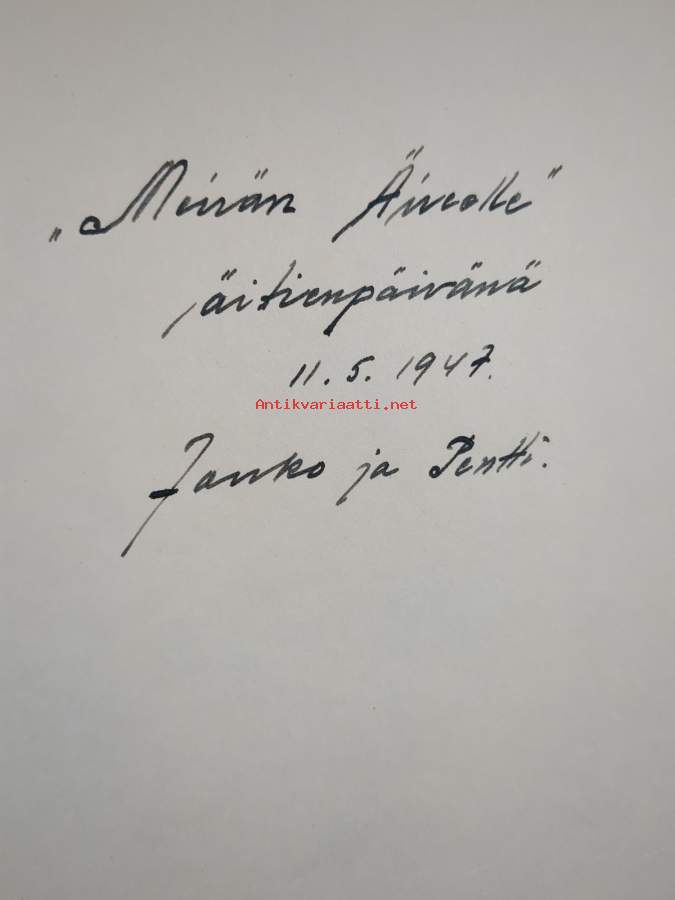 „Meirän Äireelle"
äitienpäivänä
11.5.1947.
Antikvariaatti.net
Jouko ja Pentti.